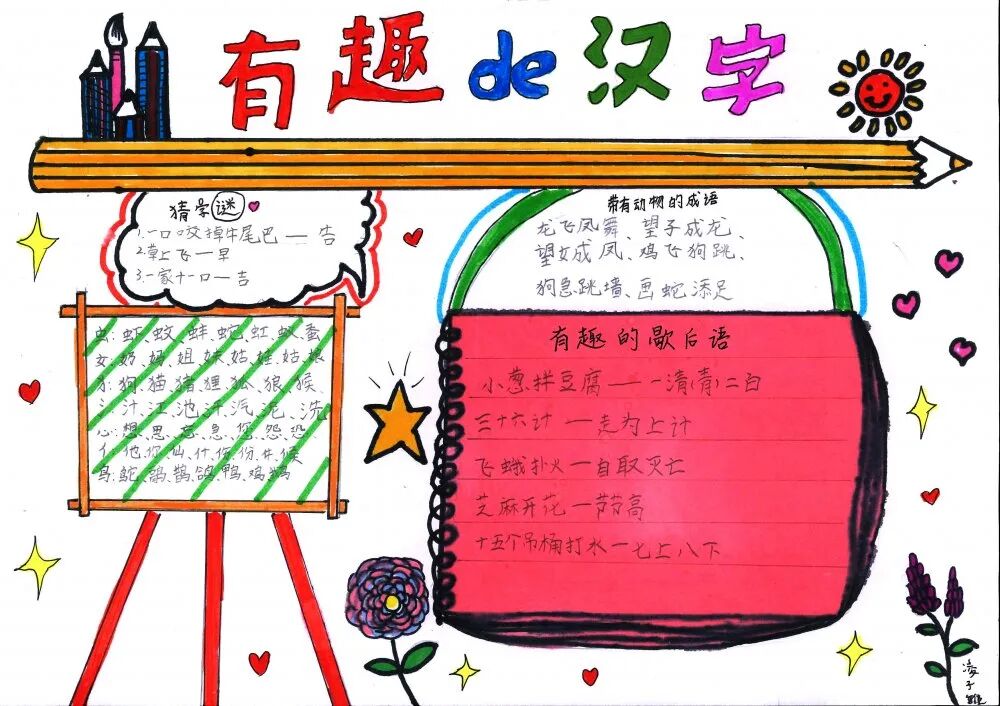 有趣de汉字
猜字谜
1.一口咬掉牛尾巴——告
2.草上飞—早
3.一家十一口—吉
虫:虾、蚊、蚌、蛇、虹、蚁、蚕
女:奶、妈、姐、妹、姑、娃、姑、娘
犭:狗、猫、猪、狸、狐、狼、猴
氵:汁、江、池、汗、汽、泥、洗
心:想、思、忘、急、您、怨、恐
亻:他、你、仙、什、份、候
鸟:鸵、鹊、鸽、鸭、鸡、鹅
带有动物的成语
龙飞凤舞、望子成龙、
望女成凤、鸡飞狗跳、
狗急跳墙、画蛇添足
有趣的歇后语
小葱拌豆腐——一清(青)二白
三十六计—走为上计
飞蛾扑火—自取灭亡
芝麻开花—节节高
十五个吊桶打水—七上八下
凌子